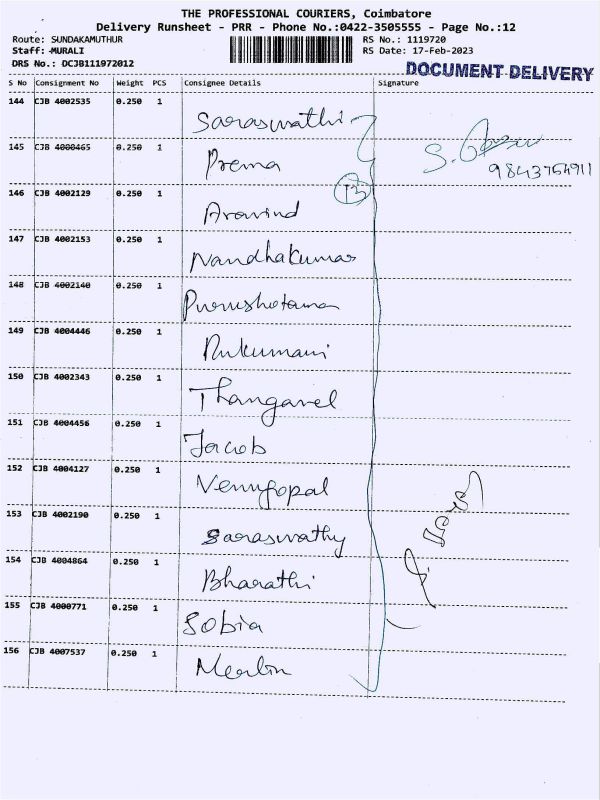 THE PROFESSIONAL COURIERS, Coimbatore
Delivery Runsheet - PRR - Phone No.:0422-3505555 - Page No.:12
Route: SUNDAKAMUTHUR RS No.: 1119720
Staff: MURALI RS Date: 17-Feb-2023
DRS No.: DCJB111972012
DOCUMENT DELIVERY
S No Consignment No Weight PCS Consignee Details Signature
144 CJB 4002535 0.250 1 Saraswathi
145 CJB 4000465 0.250 1 Prema
S.
9843754911
13
146 CJB 4002129 0.250 1 Aravind
147 CJB 4002153 0.250 1 Nandhakumar
148 CJB 4002140 0.250 1 Purushotaman
149 CJB 4004446 0.250 1 Rukumani
150 CJB 4002343 0.250 1 Thangavel
151 CJB 4004456 0.250 1 Jacob
152 CJB 4004127 0.250 1 Venugopal
153 CJB 4002190 0.250 1 Saraswathy
154 CJB 4004864 0.250 1 Bharathi
155 CJB 4000771 0.250 1 Sobia
156 CJB 4007537 0.250 1 Merlin